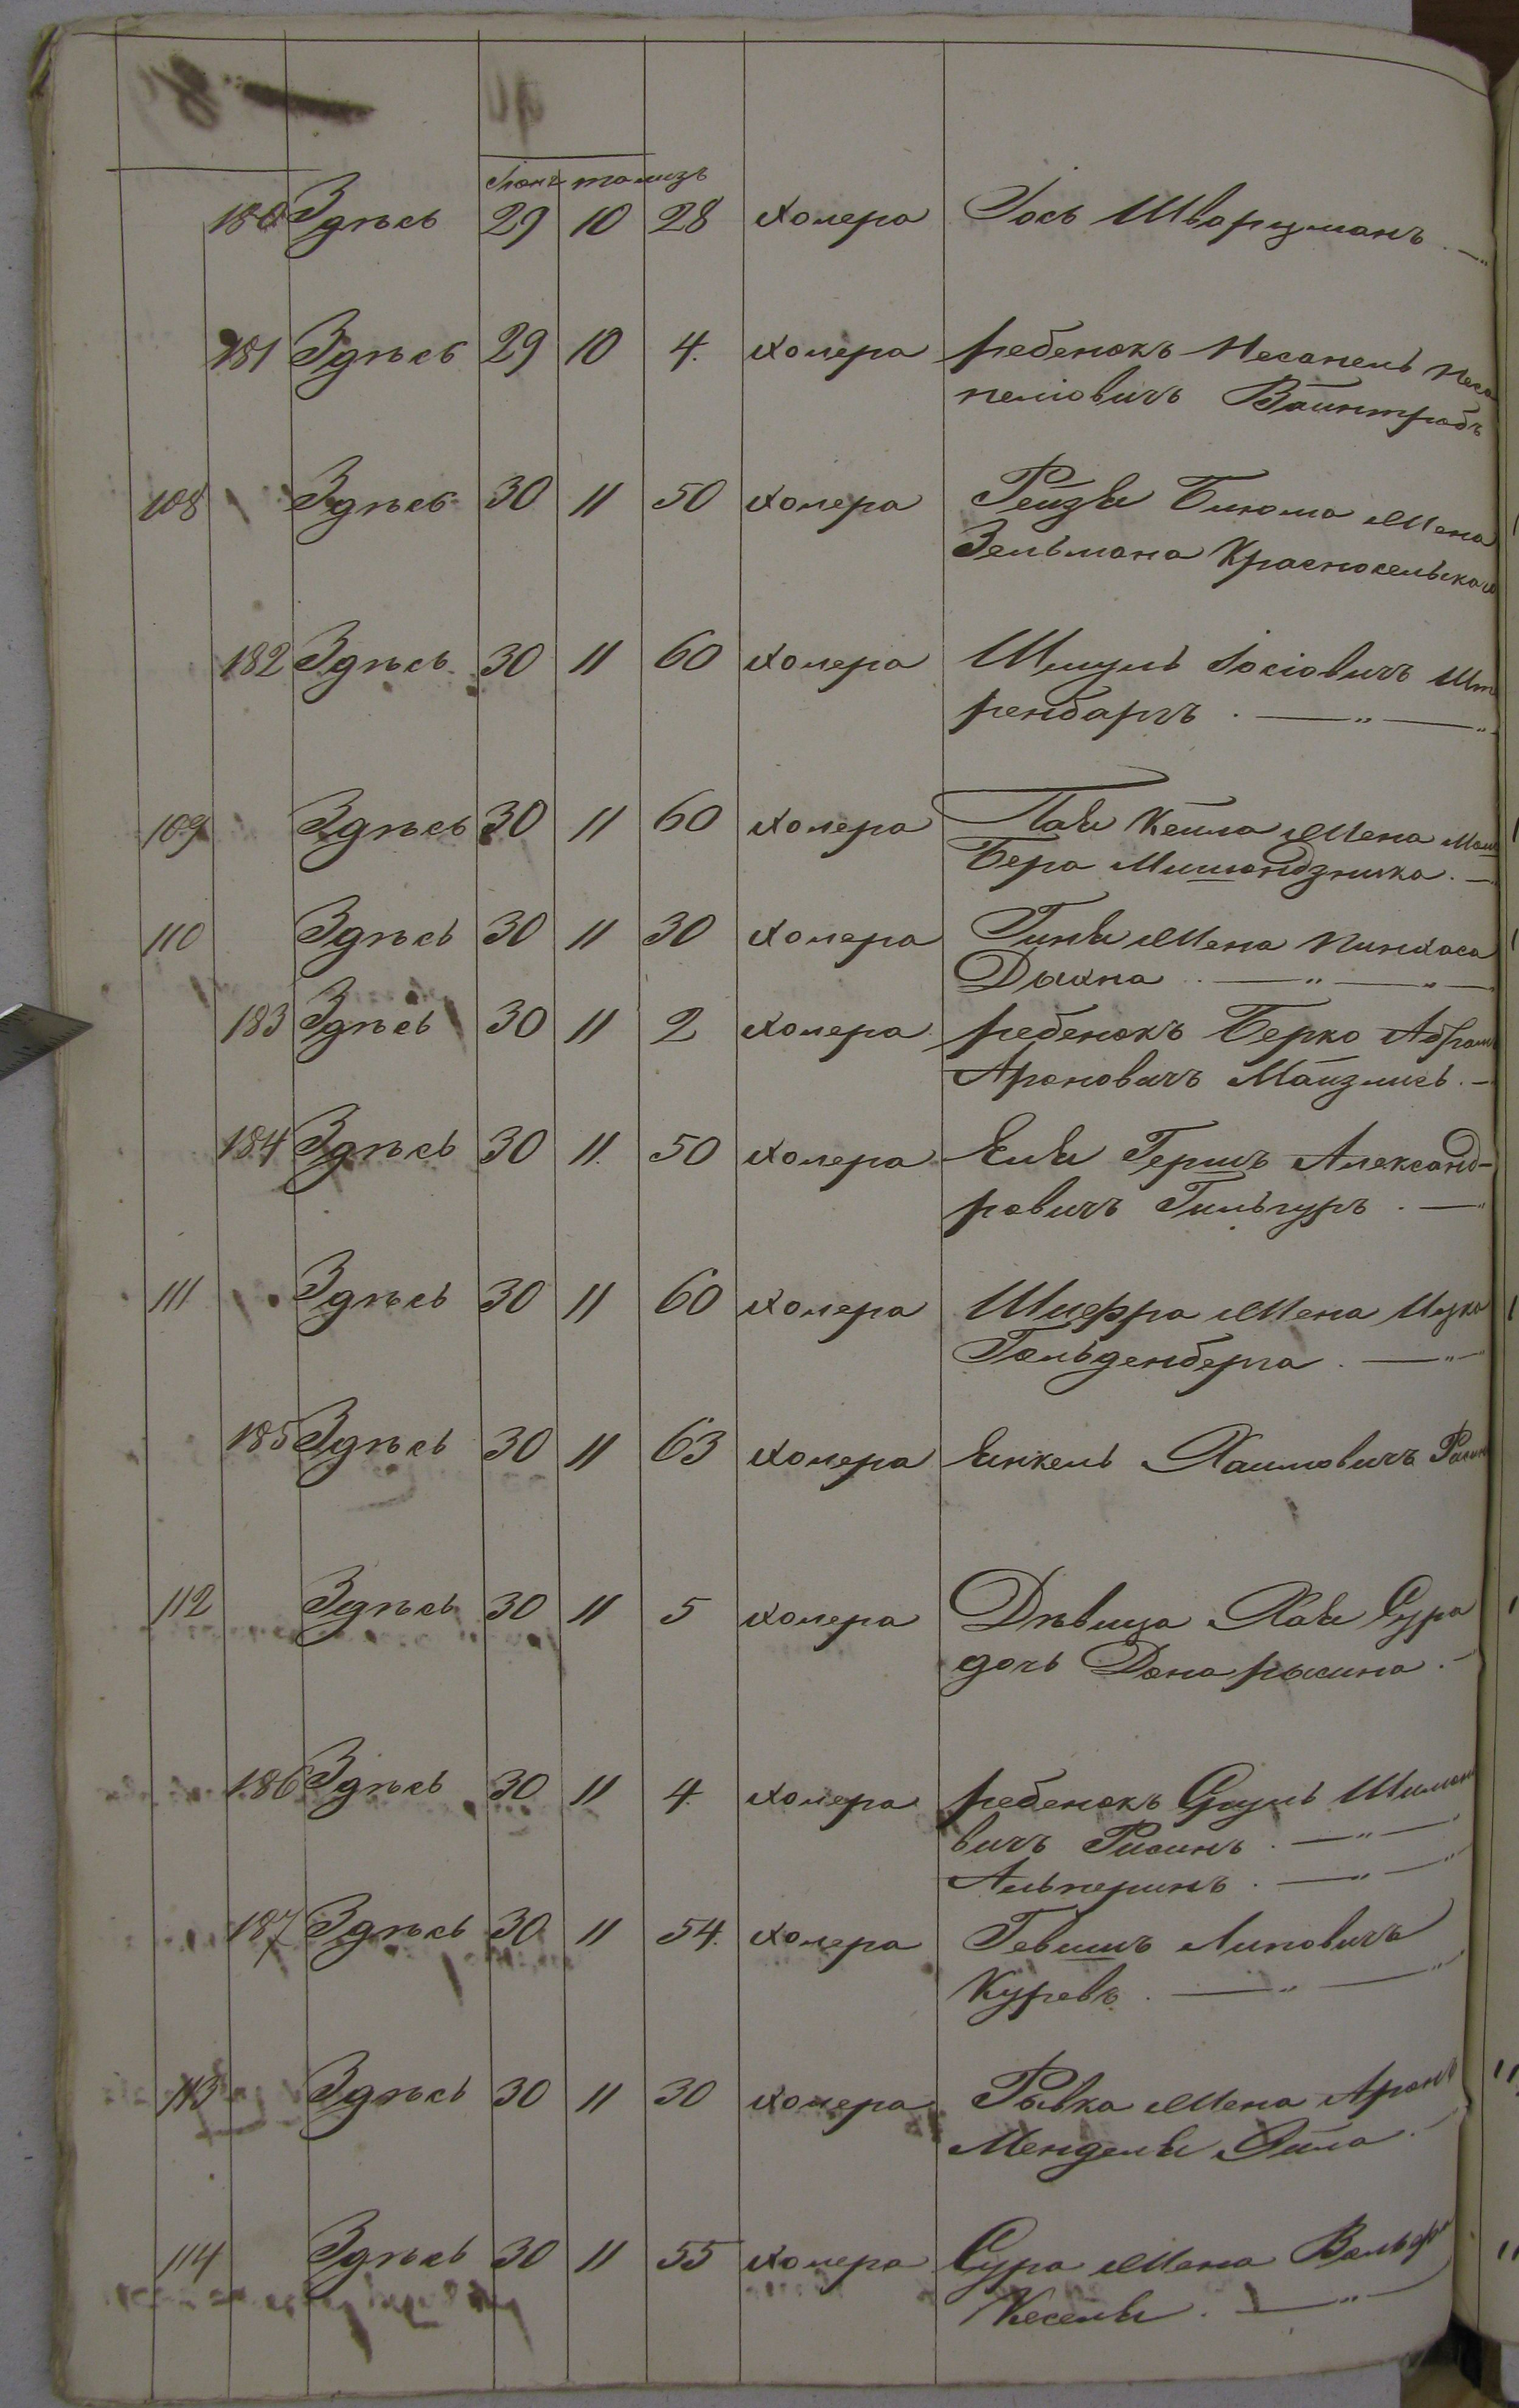 Іюнь тамизъ
180 Здѣсь 29 10 28 холера Іось Шварцманъ . — "
181 Здѣсь 29 10 4. холера ребенокъ Несанель Неса
неліовичъ Вайнтробъ
108 Здѣсь 30 11 50 холера Рейзя Блюма жена
Зельмана Красносельскаго
182 Здѣсь 30 11 60 холера Шмуль Іосіовичъ Шт
ренбаргъ . — " — "
109 Здѣсь 30 11 60 холера Кейла жена
Бера
110 Здѣсь 30 11 30 холера Гиня жена Пинхаса
Дыхна . — " — " —
183 Здѣсь 30 11 2 холера ребенокъ Берко Абрам
Ароновичъ Майзлись . —
184 Здѣсь 30 11. 50 холера Еля Гершъ Александ-
ровичъ Гильгуръ . — "
111 Здѣсь 30 11 60 холера Шифра жена Ицка
Гольденберга . — " —
185 Здѣсь 30 11 63 холера Янкель Хаимовичъ
112 Здѣсь 30 11 5 холера Дѣвица Хая Сура
дочь . —
186 Здѣсь 30 11 4. холера ребенокъ Сруль Шимоно
вичъ . — " —
Альперинъ . — " — "
187 Здѣсь 30 11 54. холера Гевишъ Липовичъ
Куревъ . — " — "
113 Здѣсь 30 11 30 холера Рывка жена Арон
Менделя
114 Здѣсь 30 11 55 холера Сура жена Вольфа
Кеселя . — " —